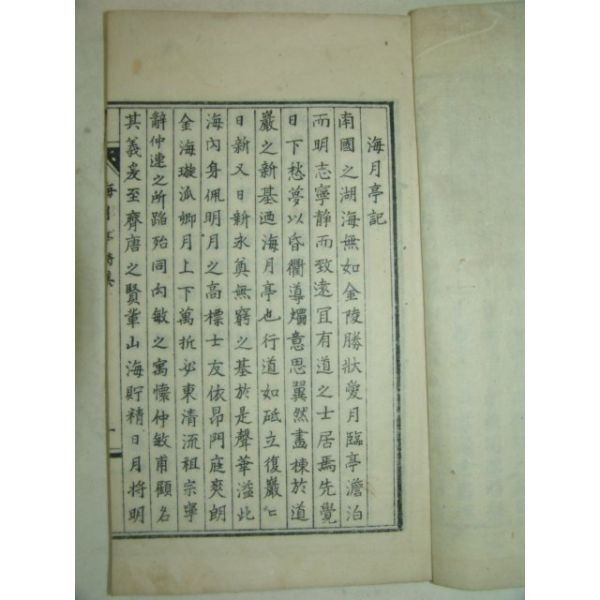 海月亭記
南國之湖海無如金陵勝狀愛月臨亭澹泊
而明志寧静而致遠冝有道之士居焉先覺
日下愁夢以昏衢導燭意思翼然畵棟於道
巖之新基迺海月亭也行道如砥立復巖〻
日新又日新永奠無窮之基於是聲華溢此
海內身佩明月之高標士友依昂門庭爽朗
金海璇派卿月上下萬折必東清流祖宗寧
辭仲連之所蹈殆同向敏之寓懷仲敏甫顧名
其義爰至齊唐之賢輩山海貯精日月將明
海月亭詩集
一